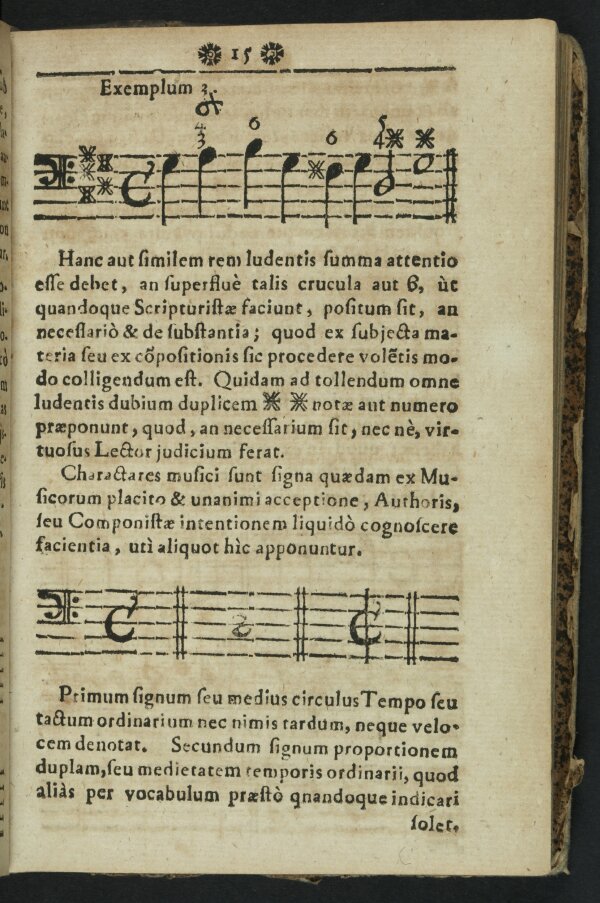 15
Exemplum 3.
4 6 6 5
3 4
Hanc aut ſimilem rem ludentis ſumma attentio
eſſe debet, an ſuperfluè talis crucula aut 6, ùt
quandoque Scripturiſtæ faciunt, poſitum ſit, an
neceſſariò & de ſubſtantia; quod ex ſubjecta ma-
teria ſeu ex cõpoſitionis ſic procedere volẽtis mo-
do colligendum eſt. Quidam ad tollendum omne
ludentis dubium duplicem notæ aut numero
præponunt, quod, an neceſſarium ſit, nec nè, vir-
tuoſus Lector judicium ferat.
Charactares muſici ſunt ſigna quædam ex Mu-
ſicorum placito & unanimi acceptione, Authoris,
ſeu Componiſtæ intentionem liquidò cognoſcere
facientia, utì aliquot hìc apponuntur.
Primum ſignum ſeu medius circulus Tempo ſeu
tactum ordinarium nec nimis tardum, neque velo-
cem denotat. Secundum ſignum proportionem
duplam, ſeu medietatem temporis ordinarii, quod
aliàs per vocabulum præſtò qnandoque indicari
ſolet.